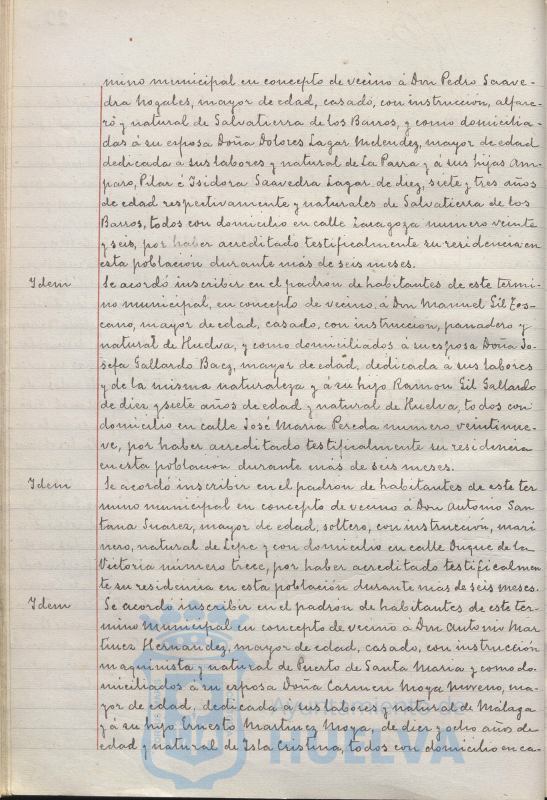 mino municipal en concepto de vecino á Don Pedro Saave-
dra Nogales, mayor de edad, casado, con instruccion, alfare-
ro y natural de Salvatierra de los Barros, y como domicilia-
das á su esposa Doña Dolores Lagar Melendez, mayor de edad
dedicada á sus labores y natural de La Parra y á sus hijas Am-
paro, Pilar é Isidora Saavedra Lagar de diez, siete y tres años
de edad respectivamente y naturales de Salvatierra de los
Barros, todos con domicilio en calle Zaragoza numero veinte
y seis, por haber acreditado testificalmente su residencia en
esta población durante más de seis meses.
Idem Se acordó inscribir en el padrón de habitantes de este termi-
no municipal, en concepto de vecino á Don Manuel Gil Tos-
cano, mayor de edad, casado, con instruccion, panadero y
natural de Huelva, y como domiciliados á su esposa Doña Jo-
sefa Gallardo Baez, mayor de edad, dedicada á sus labores
y de la misma naturaleza y á su hijo Ramon Gil Gallardo
de diez y siete años de edad y natural de Huelva, todos con
domicilio en calle José Maria Pereda numero veintinue-
ve, por haber acreditado testificalmente su residencia
en esta poblacion durante más de seis meses.
Idem Se acordó inscribir en el padrón de habitantes de este ter
mino municipal en concepto de vecino á Don Antonio San
tana Suarez, mayor de edad, soltero, con instrucción, mari
nero, natural de Lepe y con domicilio en calle Duque de la
Victoria número trece, por haber acreditado testificalmen
te su residencia en esta población durante mas de seis meses.
Idem Se acordó inscribir en el padrón de habitantes de este tér-
mino municipal en concepto de vecino á Don Antonio Mar
tinez Hernández, mayor de edad, casado, con instrucción
maquinista y natural de Puerto de Santa Maria y como do-
miciliados á su esposa Doña Carmen Moya Moreno, ma-
yor de edad, dedicada á sus labores y natural de Málaga
y á su hijo Ernesto Martinez Moya, de diez y ocho años de
edad y natural de Isla Cristina, todos con domicilio en ca-
HUELVA